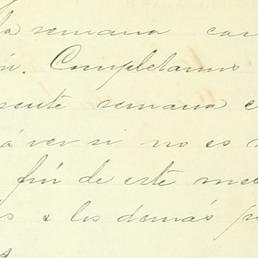 la semana con
ón. Completamos
sente semana e
á ver si no es
fin de este mes
s a los demás p
s